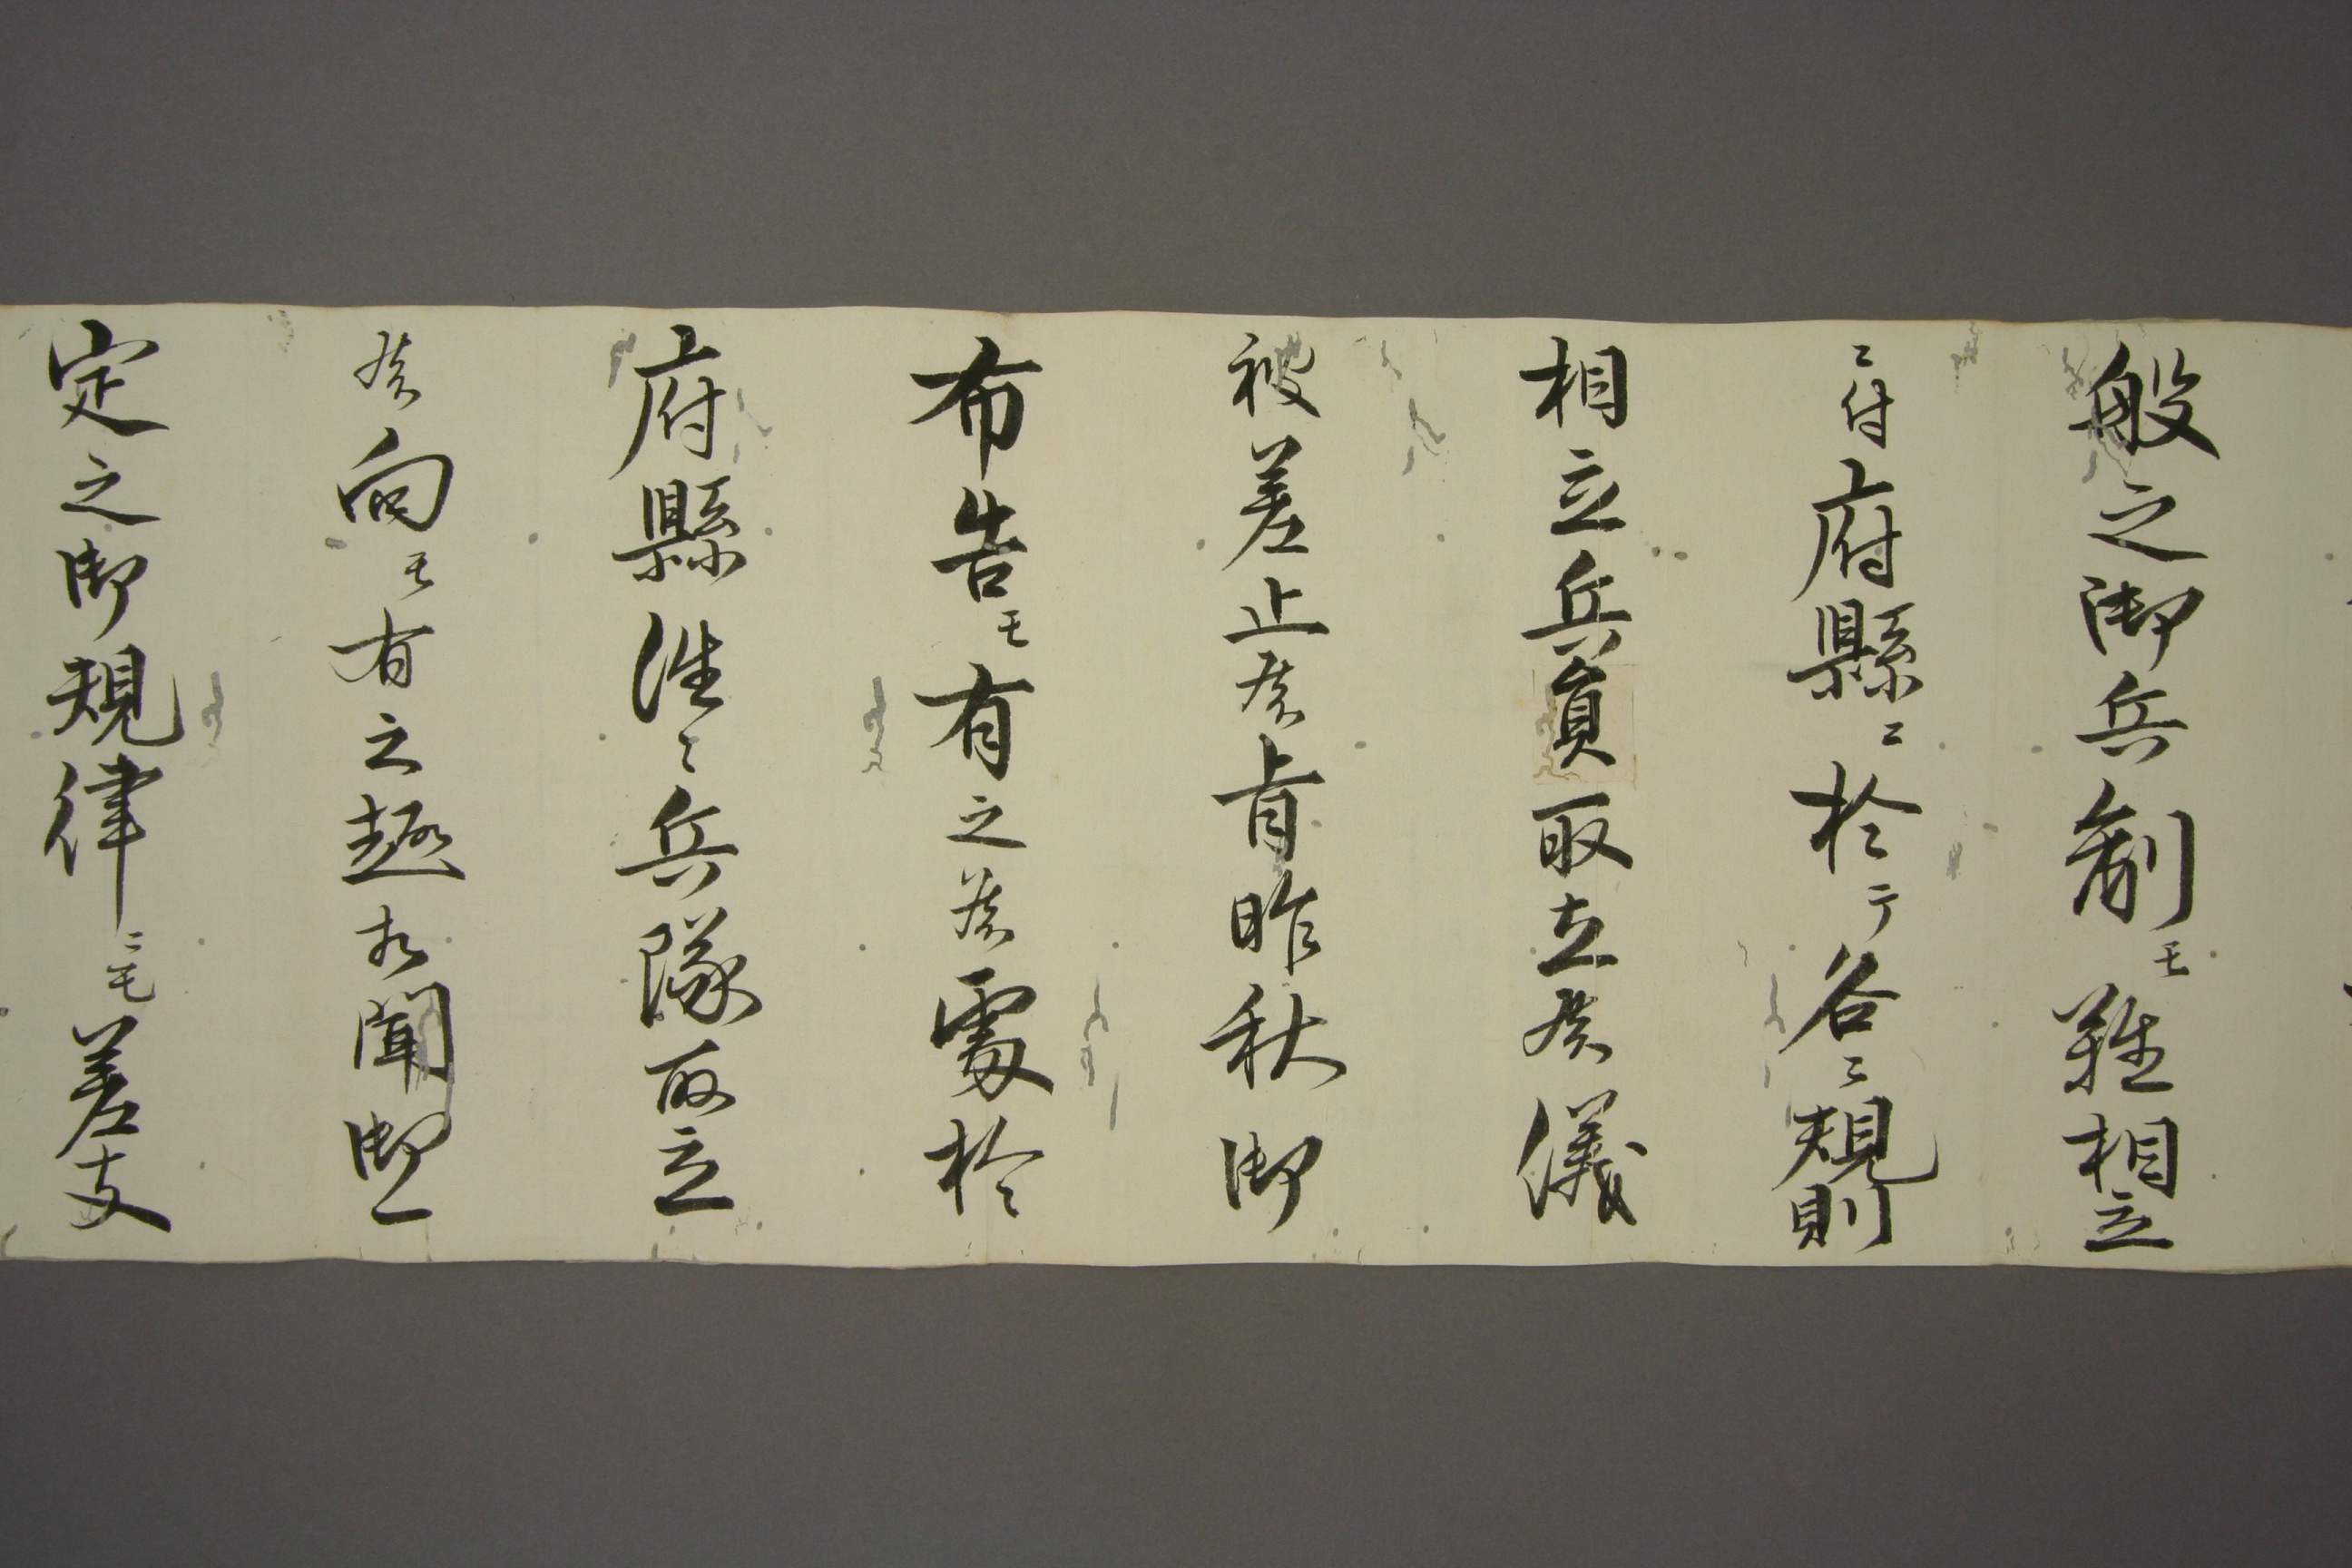 般之御兵制モ難相立
ニ付府縣ニ於テ各ニ規則
相立兵員取立候儀
被差止候旨昨秋御
布告モ有之候處於
府縣往々兵隊取立
候向モ有之趣相聞御一
定之御規律ニモ差支